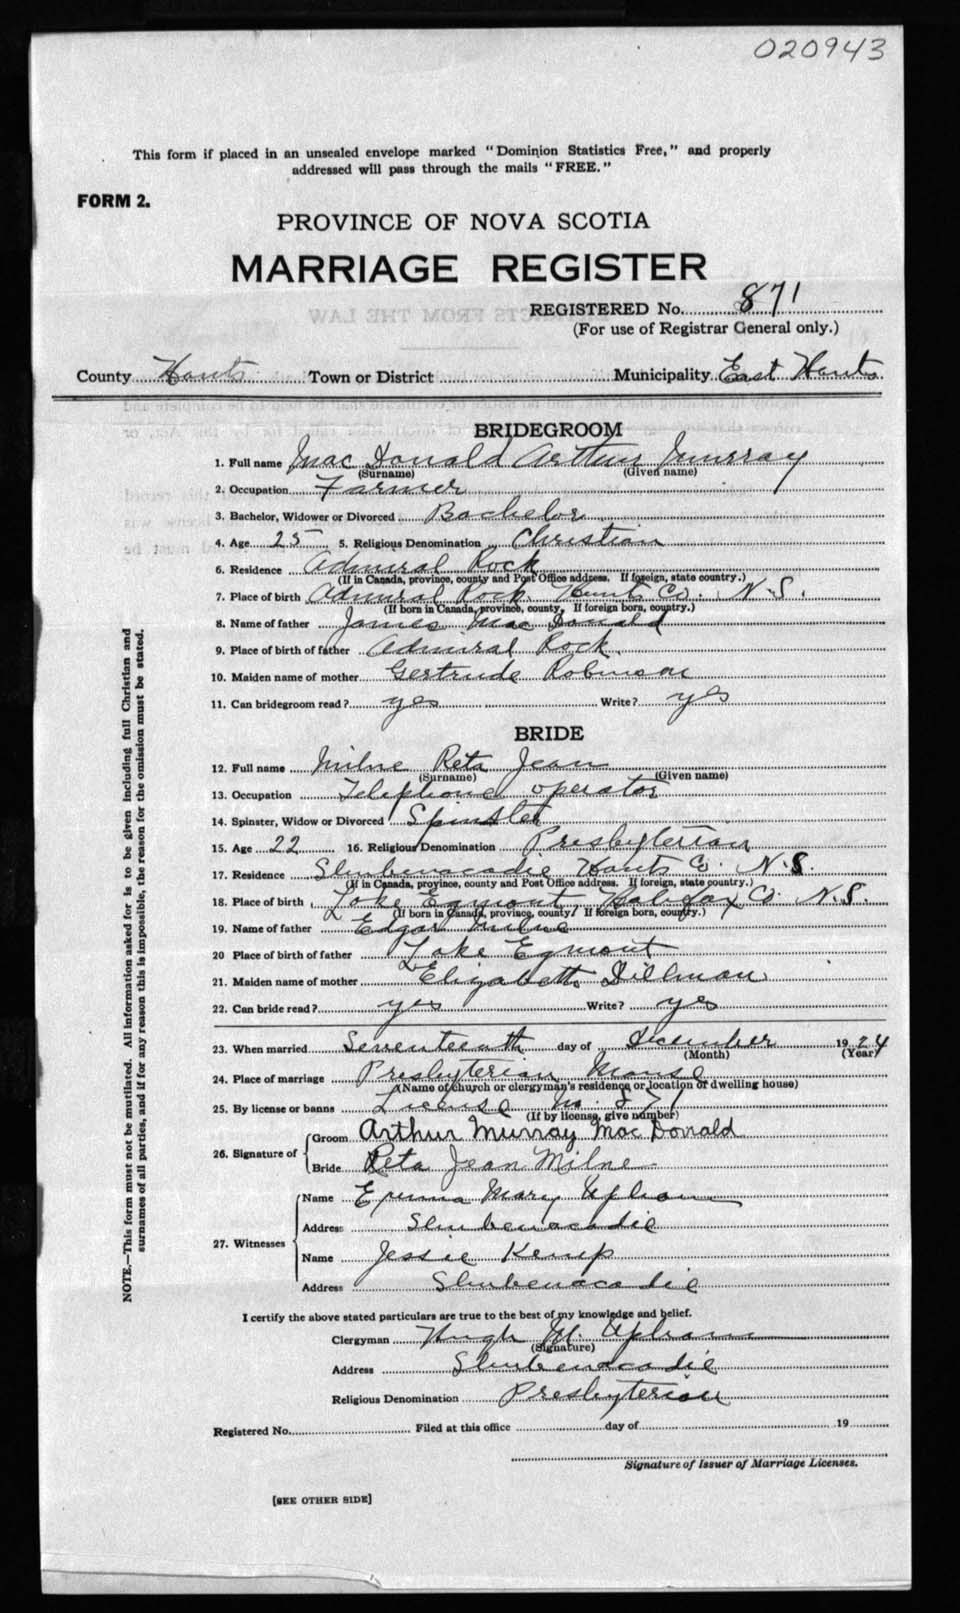 020943
This form if placed in an unsealed envelope marked "Dominion Statistics Free," and properly
addressed will pass through the mails "FREE."
FORM 2.
PROVINCE OF NOVA SCOTIA
MARRIAGE REGISTER
REGISTERED No. 871
(For use of Registrar General only.)
County Hants Town or District Municipality East Hants
BRIDEGROOM
1. Full name Mac Donald Arthur Murray
(Surname) (Given name)
2. Occupation Farmer
3. Bachelor, Widower or Divorced Bachelor
4. Age 25 5. Religious Denomination Christian
6. Residence Admiral Rock
(If in Canada, province, county and Post Office address. If foreign, state country.)
7. Place of birth Admiral Rock Hants Co. N.S.
(If born in Canada, province, county. If foreign born, country.)
8. Name of father James Mac Donald
9. Place of birth of father Admiral Rock.
10. Maiden name of mother Gertrude Robinson
11. Can bridegroom read? yes Write? yes
BRIDE
12. Full name Milne Reta Jean
(Surname) (Given name)
13. Occupation Telephone operator
14. Spinster, Widow or Divorced Spinster
15. Age 22 16. Religious Denomination Presbyterian
17. Residence Shubenacadie Hants Co. N.S.
(If in Canada, province, county and Post Office address. If foreign, state country.)
18. Place of birth Lake Egmont, Halifax Co N.S.
(If born in Canada, province, county. If foreign born, country.)
19. Name of father Edgar Milne
20 Place of birth of father Lake Egmont
21. Maiden name of mother Elizabeth Dillman
22. Can bride read? yes Write? yes
23. When married Seventeenth day of December 1924
(Month) (Year)
24. Place of marriage Presbyterian Manse
(Name of church or clergyman's residence or location of dwelling house)
25. By license or banns License No. 871
(If by license, give number)
26. Signature of Groom Arthur Murray Mac Donald
Bride Reta Jean Milne
27. Witnesses Name Emma Mary Upham
Address Shubenacadie
Name Jessie Kemp
Address Shubenacadie
I certify the above stated particulars are true to the best of my knowledge and belief.
Clergyman Hugh M. Upham
(Signature)
Address Shubenacadie
Religious Denomination Presbyterian
Registered No. Filed at this office day of 19
Signature of Issuer of Marriage Licenses.
[SEE OTHER SIDE]
NOTE.—This form must not be mutilated. All information asked for is to be given including full Christian and
surnames of all parties, and if for any reason this is impossible, the reason for the omission must be stated.